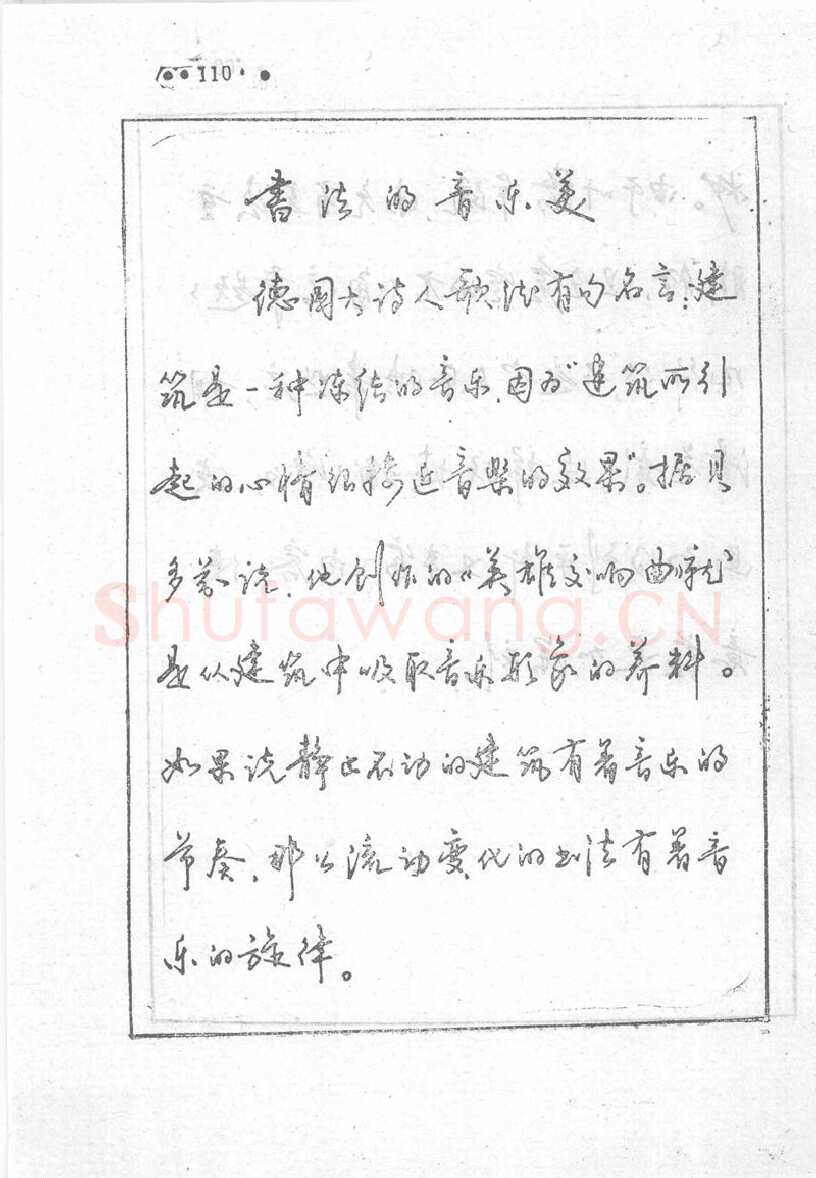 110
书法的音乐美
德国大诗人歌德有句名言:建
筑是一种冻结的音乐,因为"建筑所引
起的心情很接近音乐的效果"。据贝
多芬说,他创作的《英雄交响曲》就
Shufawang.CN
是从建筑中吸取音乐形象的养料。
如果说静止不动的建筑有着音乐的
节奏,那么流动变化的书法有着音
乐的旋律。